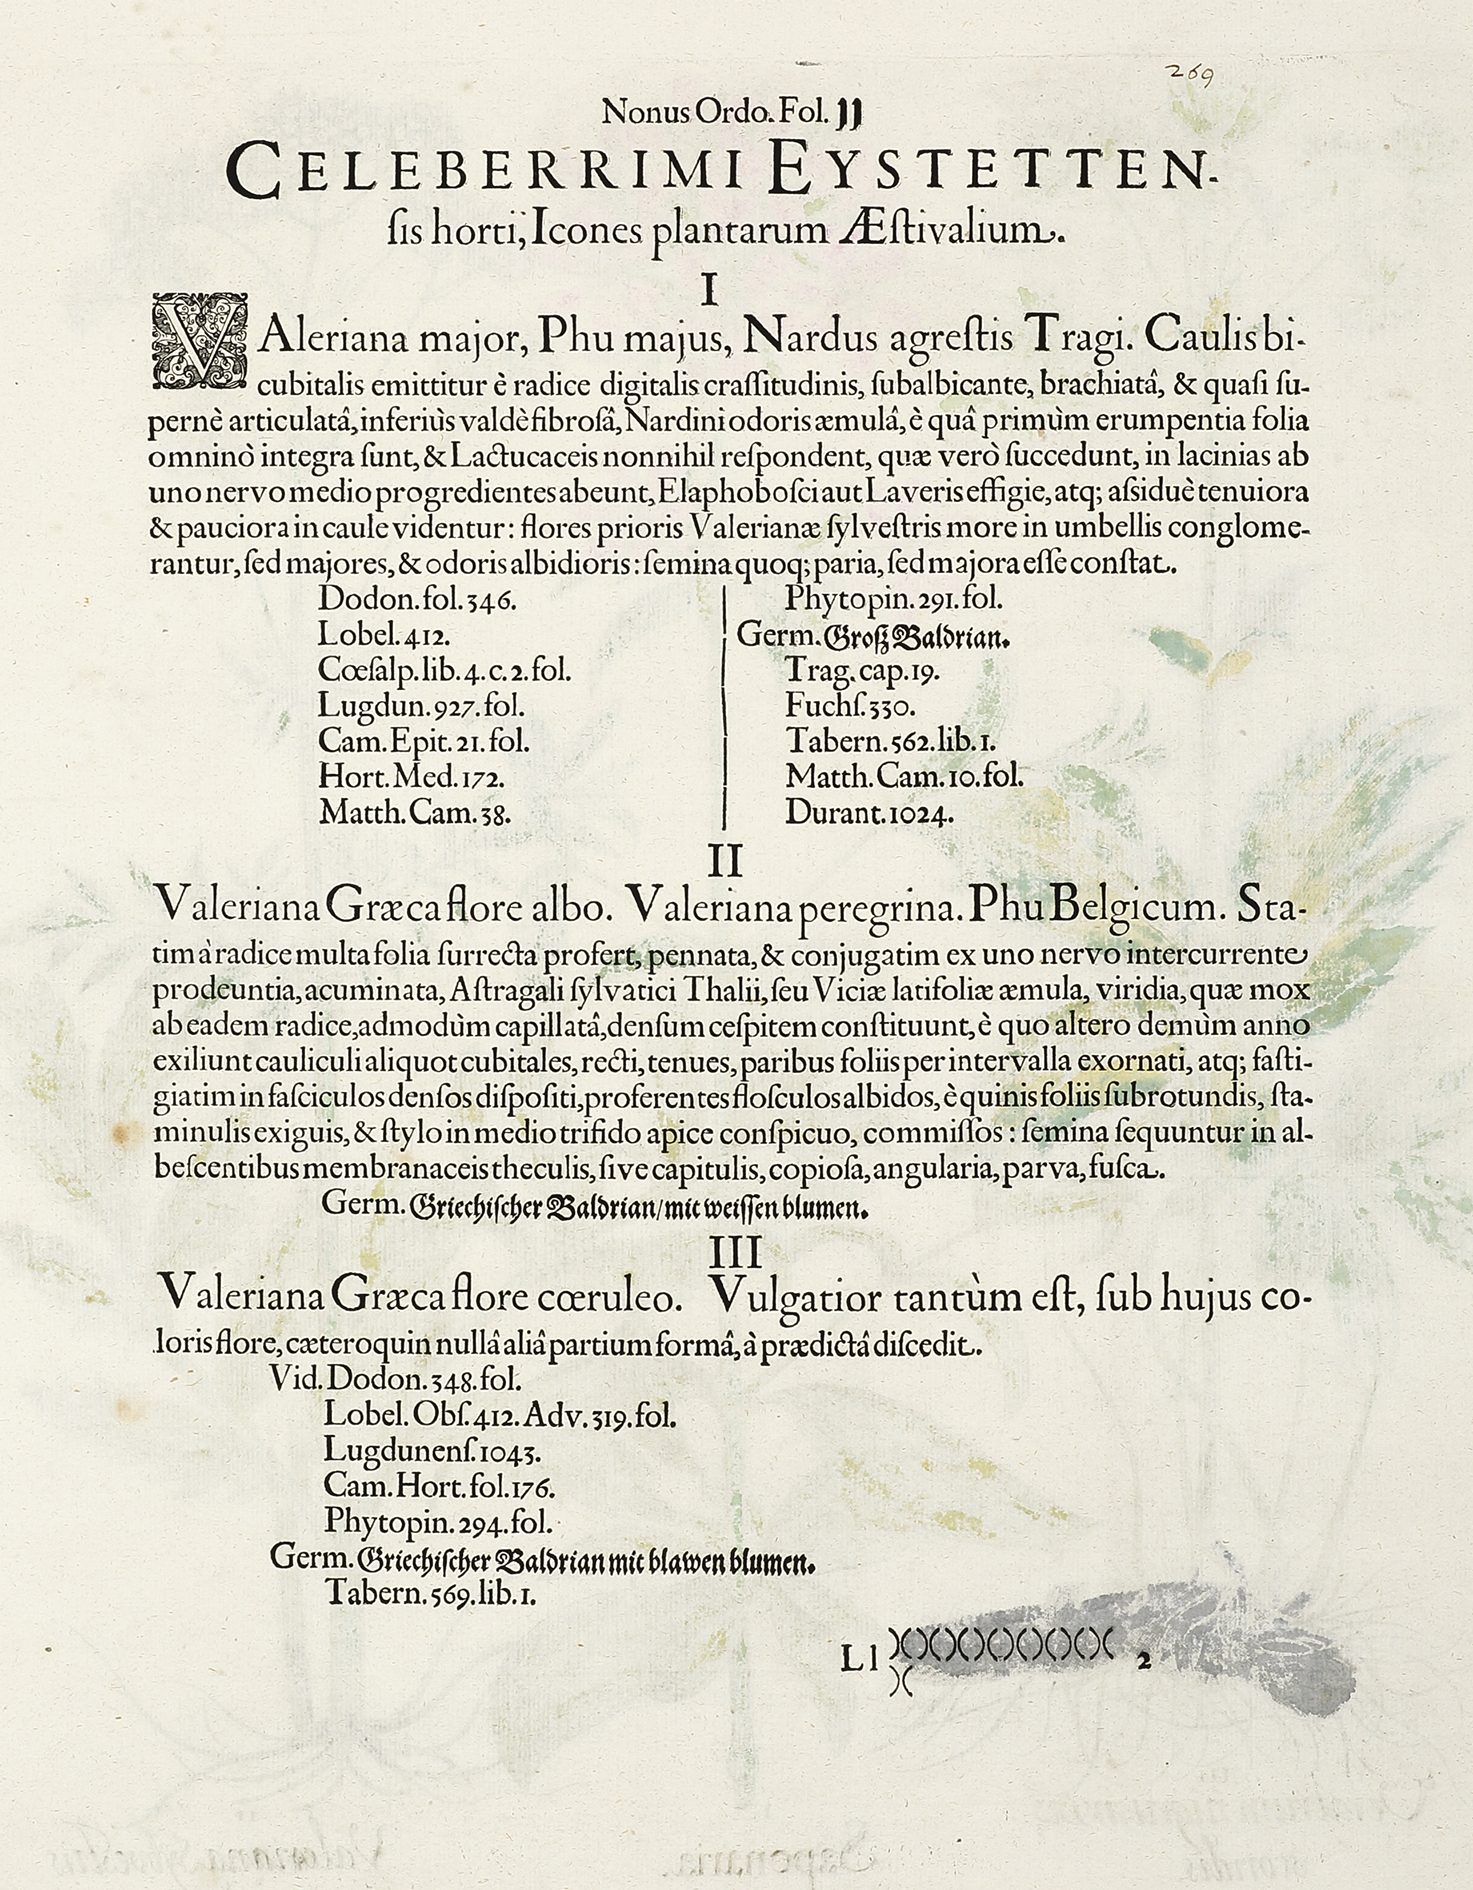 269
Nonus Ordo. Fol. JJ
CELEBERRIMI EYSTETTEN-
ſis horti, Icones plantarum Æſtivalium.
I
VAleriana major, Phu majus, Nardus agreſtis Tragi. Caulis bi-
cubitalis emittitur è radice digitalis craſſitudinis, ſubalbicante, brachiatâ, & quaſi ſu-
pernè articulatâ, inferiùs valdè fibroſâ, Nardini odoris æmulâ, è quâ primùm erumpentia folia
omninò integra ſunt, & Lactucaceis nonnihil reſpondent, quæ verò ſuccedunt, in lacinias ab
uno nervo medio progredientes abeunt, Elaphoboſci aut Laveris effigie, atq; aſsiduè tenuiora
& pauciora in caule videntur: flores prioris Valerianæ ſylveſtris more in umbellis conglome-
rantur, ſed majores, & odoris albidioris: ſemina quoq; paria, ſed majora eſſe conſtat.
Dodon. fol. 346.
Lobel. 412.
Cœſalp. lib. 4. c. 2. fol.
Lugdun. 927. fol.
Cam. Epit. 21. fol.
Hort. Med. 172.
Matth. Cam. 38.
Phytopin. 291. fol.
Germ. Groſz Baldrian.
Trag. cap. 19.
Fuchſ. 330.
Tabern. 562. lib. 1.
Matth. Cam. 10. fol.
Durant. 1024.
II
Valeriana Græca flore albo. Valeriana peregrina. Phu Belgicum. Sta-
tim à radice multa folia ſurrecta profert, pennata, & conjugatim ex uno nervo intercurrente
prodeuntia, acuminata, Aſtragali ſylvatici Thalii, ſeu Viciæ latifoliæ æmula, viridia, quæ mox
ab eadem radice, admodùm capillatâ, denſum ceſpitem conſtituunt, è quo altero demùm anno
exiliunt cauliculi aliquot cubitales, recti, tenues, paribus foliis per intervalla exornati, atq; faſti-
giatim in faſciculos denſos diſpoſiti, proferentes floſculos albidos, è quinis foliis ſubrotundis, ſta-
minulis exiguis, & ſtylo in medio trifido apice conſpicuo, commiſſos: ſemina ſequuntur in al-
beſcentibus membranaceis theculis, ſive capitulis, copioſa, angularia, parva, fuſca.
Germ. Griechiſcher Baldrian/ mit weiſſen blumen.
III
Valeriana Græca flore cœruleo. Vulgatior tantùm eſt, ſub hujus co-
loris flore, cæteroquin nullâ aliâ partium formâ, à prædictâ diſcedit.
Vid. Dodon. 348. fol.
Lobel. Obſ. 412. Adv. 319. fol.
Lugdunenſ. 1043.
Cam. Hort. fol. 176.
Phytopin. 294. fol.
Germ. Griechiſcher Baldrian mit blawen blumen.
Tabern. 569. lib. 1.
Ll )()()()()()()()( 2
)(